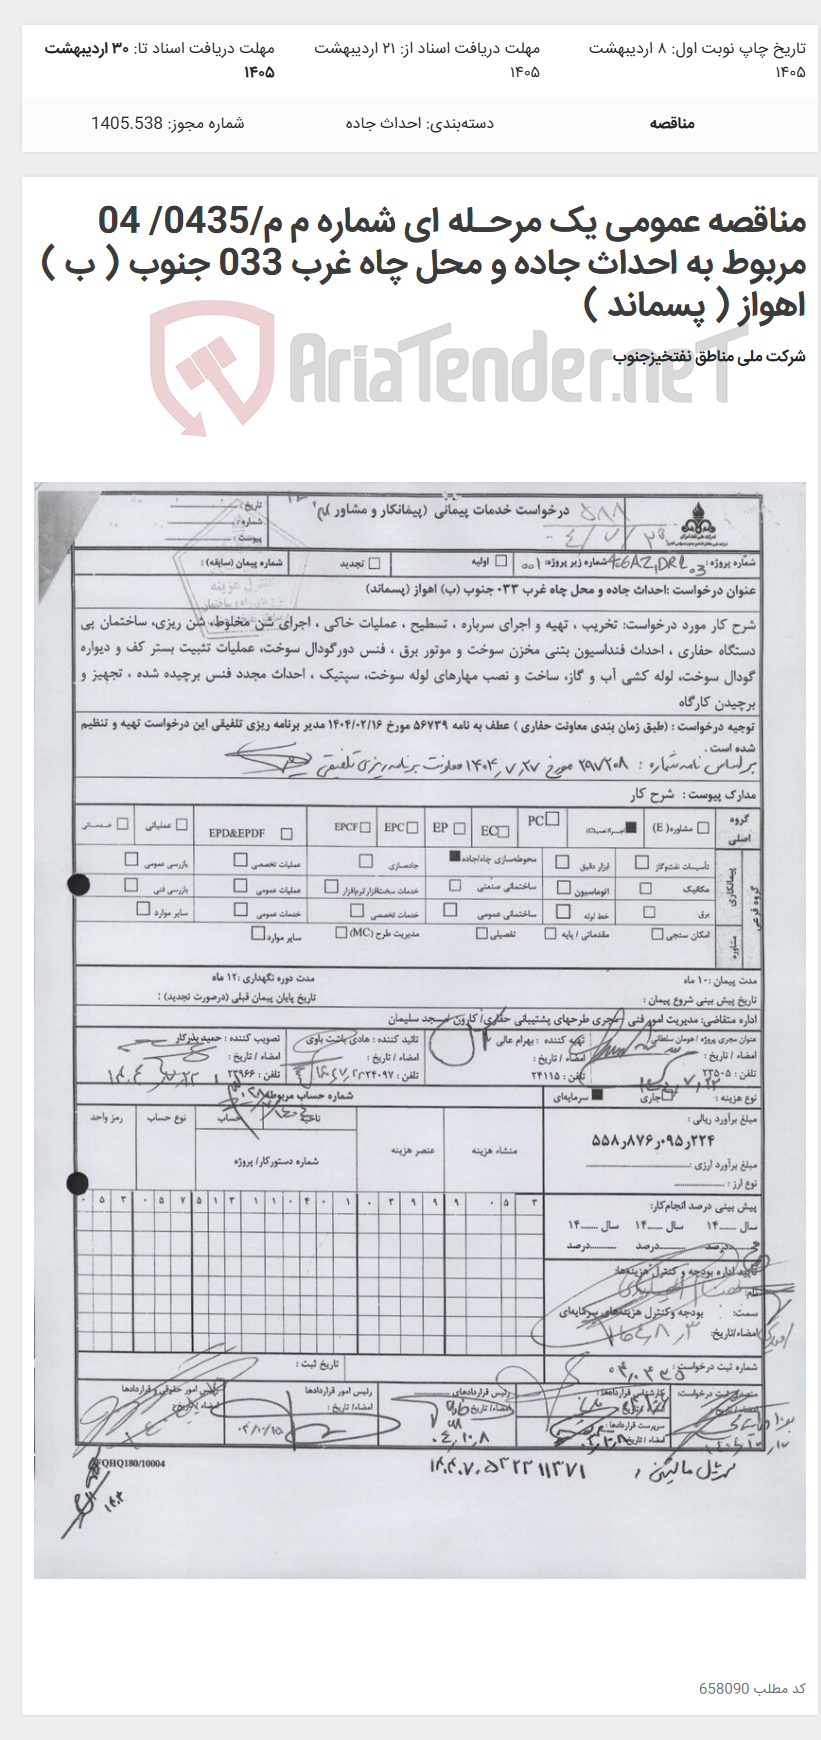 تاریخ چاپ نوبت اول: ۸ اردیبهشت ۱۴۰۵
مهلت دریافت اسناد از: ۲۱ اردیبهشت ۱۴۰۵
مهلت دریافت اسناد تا: ۳۰ اردیبهشت ۱۴۰۵
مناقصه
دسته‌بندی: احداث جاده
شماره مجوز: 1405.538
مناقصه عمومی یک مرحـله ای شماره م م/0435/ 04
مربوط به احداث جاده و محل چاه غرب 033 جنوب ( ب )
اهواز ( پسماند )
شرکت ملی مناطق نفتخیزجنوب
AriaTender.neT
درخواست خدمات پیمانی (پیمانکار و مشاور)
تاریخ :
شماره :
پیوست :
شماره پروژه :
شماره زیر پروژه: ۰۰۱
اولیه
تجدید
شماره پیمان (سابقه) :
عنوان درخواست :احداث جاده و محل چاه غرب ۰۳۳ جنوب (ب) اهواز (پسماند)
شرح کار مورد درخواست: تخریب ، تهیه و اجرای سرباره ، تسطیح ، عملیات خاکی ، اجرای شن مخلوط، شن ریزی، ساختمان پی
دستگاه حفاری ، احداث فنداسیون بتنی مخزن سوخت و موتور برق ، فنس دورگودال سوخت، عملیات تثبیت بستر کف و دیواره
گودال سوخت، لوله کشی آب و گاز، ساخت و نصب مهارهای لوله سوخت، سپتیک ، احداث مجدد فنس برچیده شده ، تجهیز و
برچیدن کارگاه
توجیه درخواست : (طبق زمان بندی معاونت حفاری ) عطف به نامه ۵۶۷۳۹ مورخ ۱۴۰۴/۰۲/۱۶ مدیر برنامه ریزی تلفیقی این درخواست تهیه و تنظیم
شده است .
بر اساس نامه شماره : ۲۹۷۲۰۸ مورخ ۱۴۰۴,۷,۲۷ معاونت برنامه ریزی تلفیقی
مدارک پیوست : شرح کار
گروه اصلی
مشاوره( E)
PC
EC
EP
EPC
EPCF
EPD&EPDF
عملیاتی
خدماتی
گروه فرعی
پیمانکاری
تأسیسات نفت‌وگاز
ابزار دقیق
محوطه‌سازی چاه/جاده
جاده‌سازی
عملیات تخصصی
بازرسی عمومی
مکانیک
اتوماسیون
ساختمانی صنعتی
خدمات سخت‌افزار/نرم‌افزار
عملیات عمومی
بازرسی فنی
برق
خط لوله
ساختمانی عمومی
خدمات تخصصی
خدمات عمومی
سایر موارد
مشاوره
امکان سنجی
مقدماتی / پایه
تفصیلی
مدیریت طرح (MC)
سایر موارد
مدت پیمان :۱۰ ماه
مدت دوره نگهداری :۱۲ ماه
تاریخ پیش بینی شروع پیمان :
تاریخ پایان پیمان قبلی (درصورت تجدید) :
اداره متقاضی: مدیریت امور فنی / مجری طرحهای پشتیبانی حفاری/ کارون /مسجد سلیمان
عنوان مجری پروژه / هومان سلطانی
تهیه کننده : بهرام عالی
تائید کننده : هادی باشت باوی
تصویب کننده : حمید بذرکار
امضاء / تاریخ :
امضاء / تاریخ :
امضاء / تاریخ :
امضاء / تاریخ :
تلفن : ۲۳۵۰۵
تلفن : ۲۴۱۱۵
تلفن : ۲۴۰۹۷
تلفن : ۲۳۹۶۶
نوع هزینه :
جاری
سرمایه‌ای
شماره حساب مربوطه
مبلغ برآورد ریالی :
۵۵۸٫۸۷۶٫۰۹۵٫۲۲۴
مبلغ برآورد ارزی :
نوع ارز :
ناحیه
حساب
نوع حساب
رمز واحد
منشاء هزینه
عنصر هزینه
شماره دستورکار/ پروژه
پیش بینی درصد انجام‌کار:
سال ....۱۴ سال ....۱۴ سال ....۱۴
درصد درصد درصد
تأیید اداره بودجه و کنترل هزینه‌ها:
نام:
سمت: بودجه وکنترل هزینه‌های سرمایه‌ای
امضاء/تاریخ:
شماره ثبت درخواست :
تاریخ ثبت :
متصدی ثبت درخواست:
کارشناس قراردادها :
رئیس قراردادهای
رئیس امور قراردادها
رئیس امور حقوقی و قراردادها
امضاء / تاریخ :
سرپرست قراردادها :
امضاء / تاریخ :
FQHQ180/10004
کد مطلب 658090